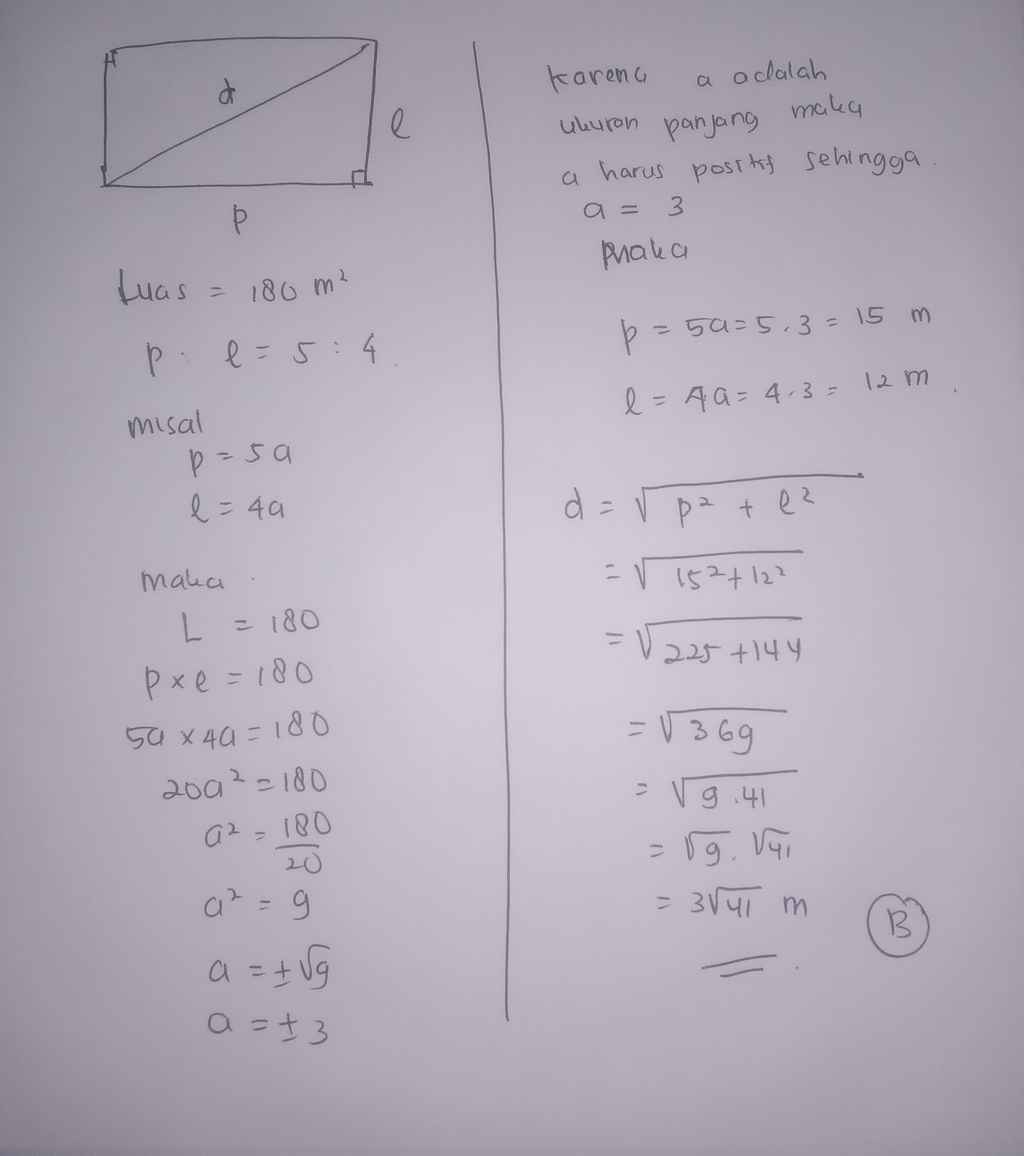 d
l
p
Luas = 180 m²
p : l = 5 : 4
misal
p = 5a
l = 4a
maka
L = 180
p x l = 180
5a x 4a = 180
20a² = 180
a² = 180/20
a² = 9
a = ±√9
a = ± 3
Karena a adalah
ukuran panjang maka
a harus positif sehingga.
a = 3
Maka
p = 5a = 5.3 = 15 m
l = 4a = 4.3 = 12 m.
d = √p² + l²
= √15² + 12²
= √225 + 144
= √369
= √9.41
= √9.√41
= 3√41 m
B